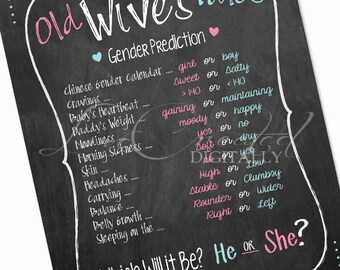 Old Wives Tales
Gender Prediction
Chinese Gender Calendar ... girl or boy
Cravings ... Sweet or Salty
Baby's Heartbeat ... >140 or <140
Daddy's Weight ... gaining or maintaining
Moodiness ... moody or happy
Morning Sickness ... yes or no
Skin ... Soft or dry
Headaches ... yes or no
Carrying ... High or Low
Balance ... Stable or Clumsy
Belly Growth ... Rounder or Wider
Sleeping on the ... Right or Left
Which Will it Be? He or She?
DIGITALLY